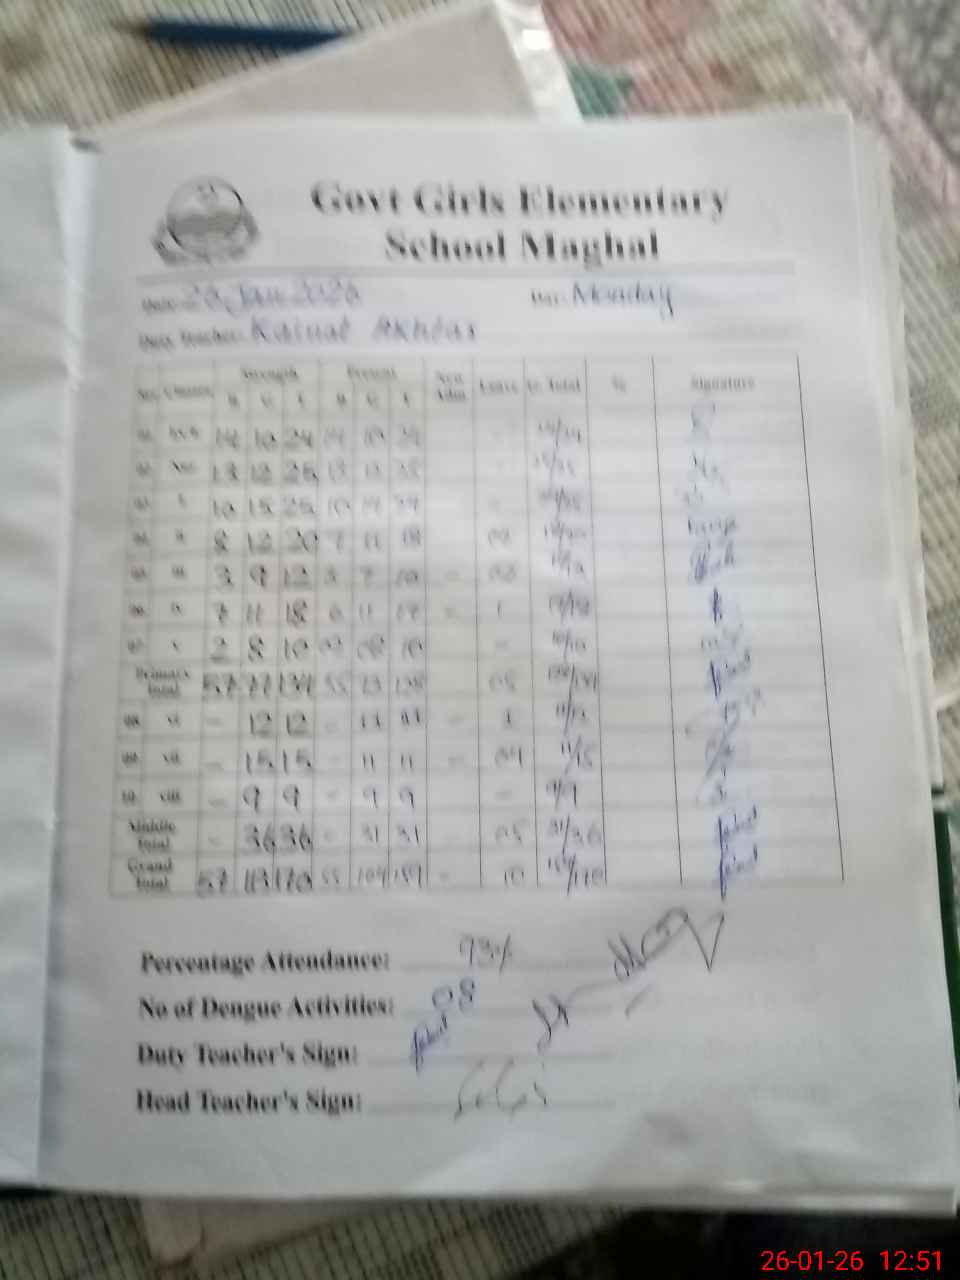 Govt Girls Elementary
School Maghal
Date: 26 Jan 2026 Day: Monday
Duty Teacher: Kainat Akhtar
Sr. Classes Strength Present New Adm Leave G. Total % Signature
B G T B G T
14 10 24 14 10 24 24/24
13 12 25 13 12 25 25/25
10 15 25 10 14 24
8 12 20 7 11 18 02 18/20
3 9 12 3 7 10 - 02 10/12
7 11 18 6 11 17 - 1 17/18
2 8 10 02 08 10 - 10/10
Primary Total 57 77 134 55 73 128 05
vi - 12 12 - 11 11 - 1 11/12
vii - 15 15 - 11 11 - 04 11/15
viii - 9 9 - 9 9 - 9/9
Middle Total - 36 36 - 31 31 05 31/36
Grand Total 57 113 170 55 104 159 - 10 159/170
Percentage Attendance: 93%
No of Dengue Activities: 08
Duty Teacher's Sign:
Head Teacher's Sign:
26-01-26 12:51